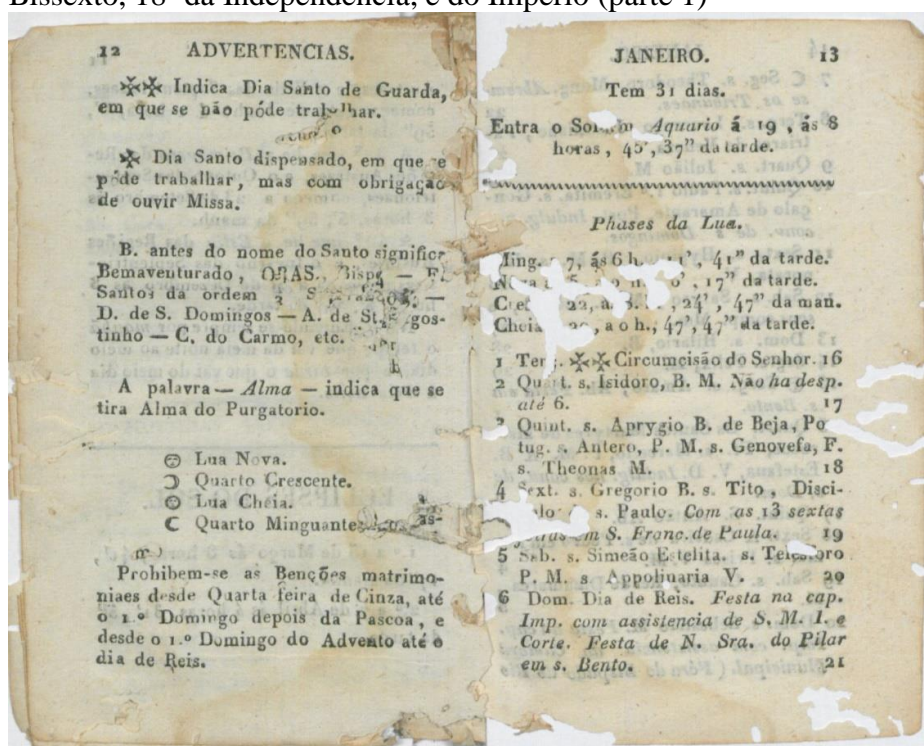 Bissexto, 18º da Independencia, e do Imperio (parte 1)
12 ADVERTENCIAS.
Indica Dia Santo de Guarda,
em que se não póde trabalhar.
Dia Santo dispensado, em que se
póde trabalhar, mas com obrigação
de ouvir Missa.
B. antes do nome do Santo significa
Bemaventurado,
Santos da ordem
D. de S. Domingos — A. de St. gos-
tinho — C. do Carmo, etc.
A palavra — Alma — indica que se
tira Alma do Purgatorio.
Lua Nova.
Quarto Crescente.
Lua Cheia.
Quarto Minguante
Prohibem-se as Bençőes matrimo-
niaes desde Quarta feira de Cinza, até
o 1.º Domingo depois da Pascoa, e
desde o 1.º Domingo do Advento até o
dia de Reis.
JANEIRO. 13
Tem 31 dias.
Entra o Sol Aquario á 19, ás 8
horas, 37” da tarde.
Phases da Lua.
Ming. 7, ás 6 h. 41” da tarde.
17” da tarde.
22, 24’, 47” da man.
Cheia a o h., 47’, 47” da tarde.
1 Terç. Circumcisão do Senhor. 16
2 Quart. s. Isidoro, B. M. Não ha desp.
até 6. 17
3 Quint. s. Aprygio B. de Beja, Po
tug. s. Antero, P. M. s. Genovefa, F.
s. Theonas M. 18
4 Sext. s. Gregorio B. s. Tito, Disci-
s. Paulo. Com as 13 sextas
em S. Franc. de Paula. 19
5 Sab. s. Simeão Estelita. s. Telesforo
P. M. s Appolinaria V. 20
6 Dom. Dia de Reis. Festa na cap.
Imp. com assistencia de S. M. I. e
Corte. Festa de N. Sra. do Pilar
em s. Bento. 21